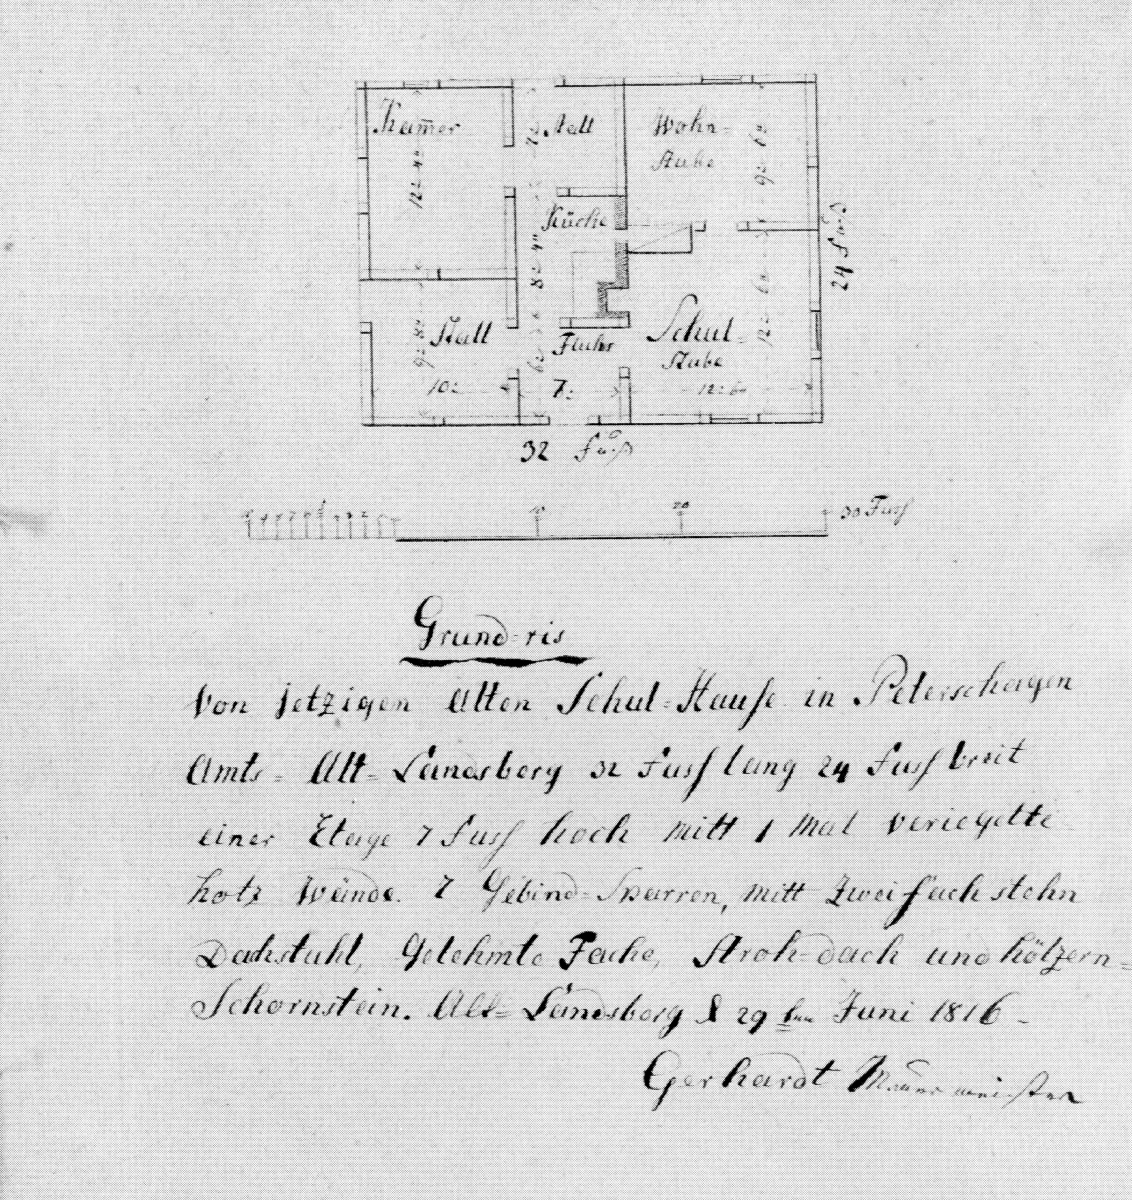 Kam̅er
Stall
Wohn-
Stube
Küche
24 Fuß
Stall
Fluhr
Schul-
Stube
10
7
12 6
32 Fuß
10
20
30 Fuss
Grund-ris
Von jetzigen Alten Schul-Hause in Petershagen
Amts-Alt-Landsberg 32 Fuss lang 24 Fuss breit
einer Etage 7 Fuss hoch mitt 1 Mal veriegelte
holz Wände. 7 Gebind-Sparren, mitt Zweifach stehn
Dachstuhl, Gelehmte Fache, Stroh-dach und hölzern-
Schornstein. Alt-Landsberg d 29 ten Juni 1816
Gerhardt Mauermeister